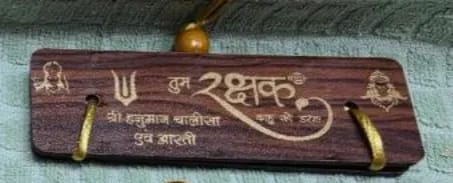 तुम रक्षक
काहू को डरना
श्री हनुमान चालीसा
एवं आरती